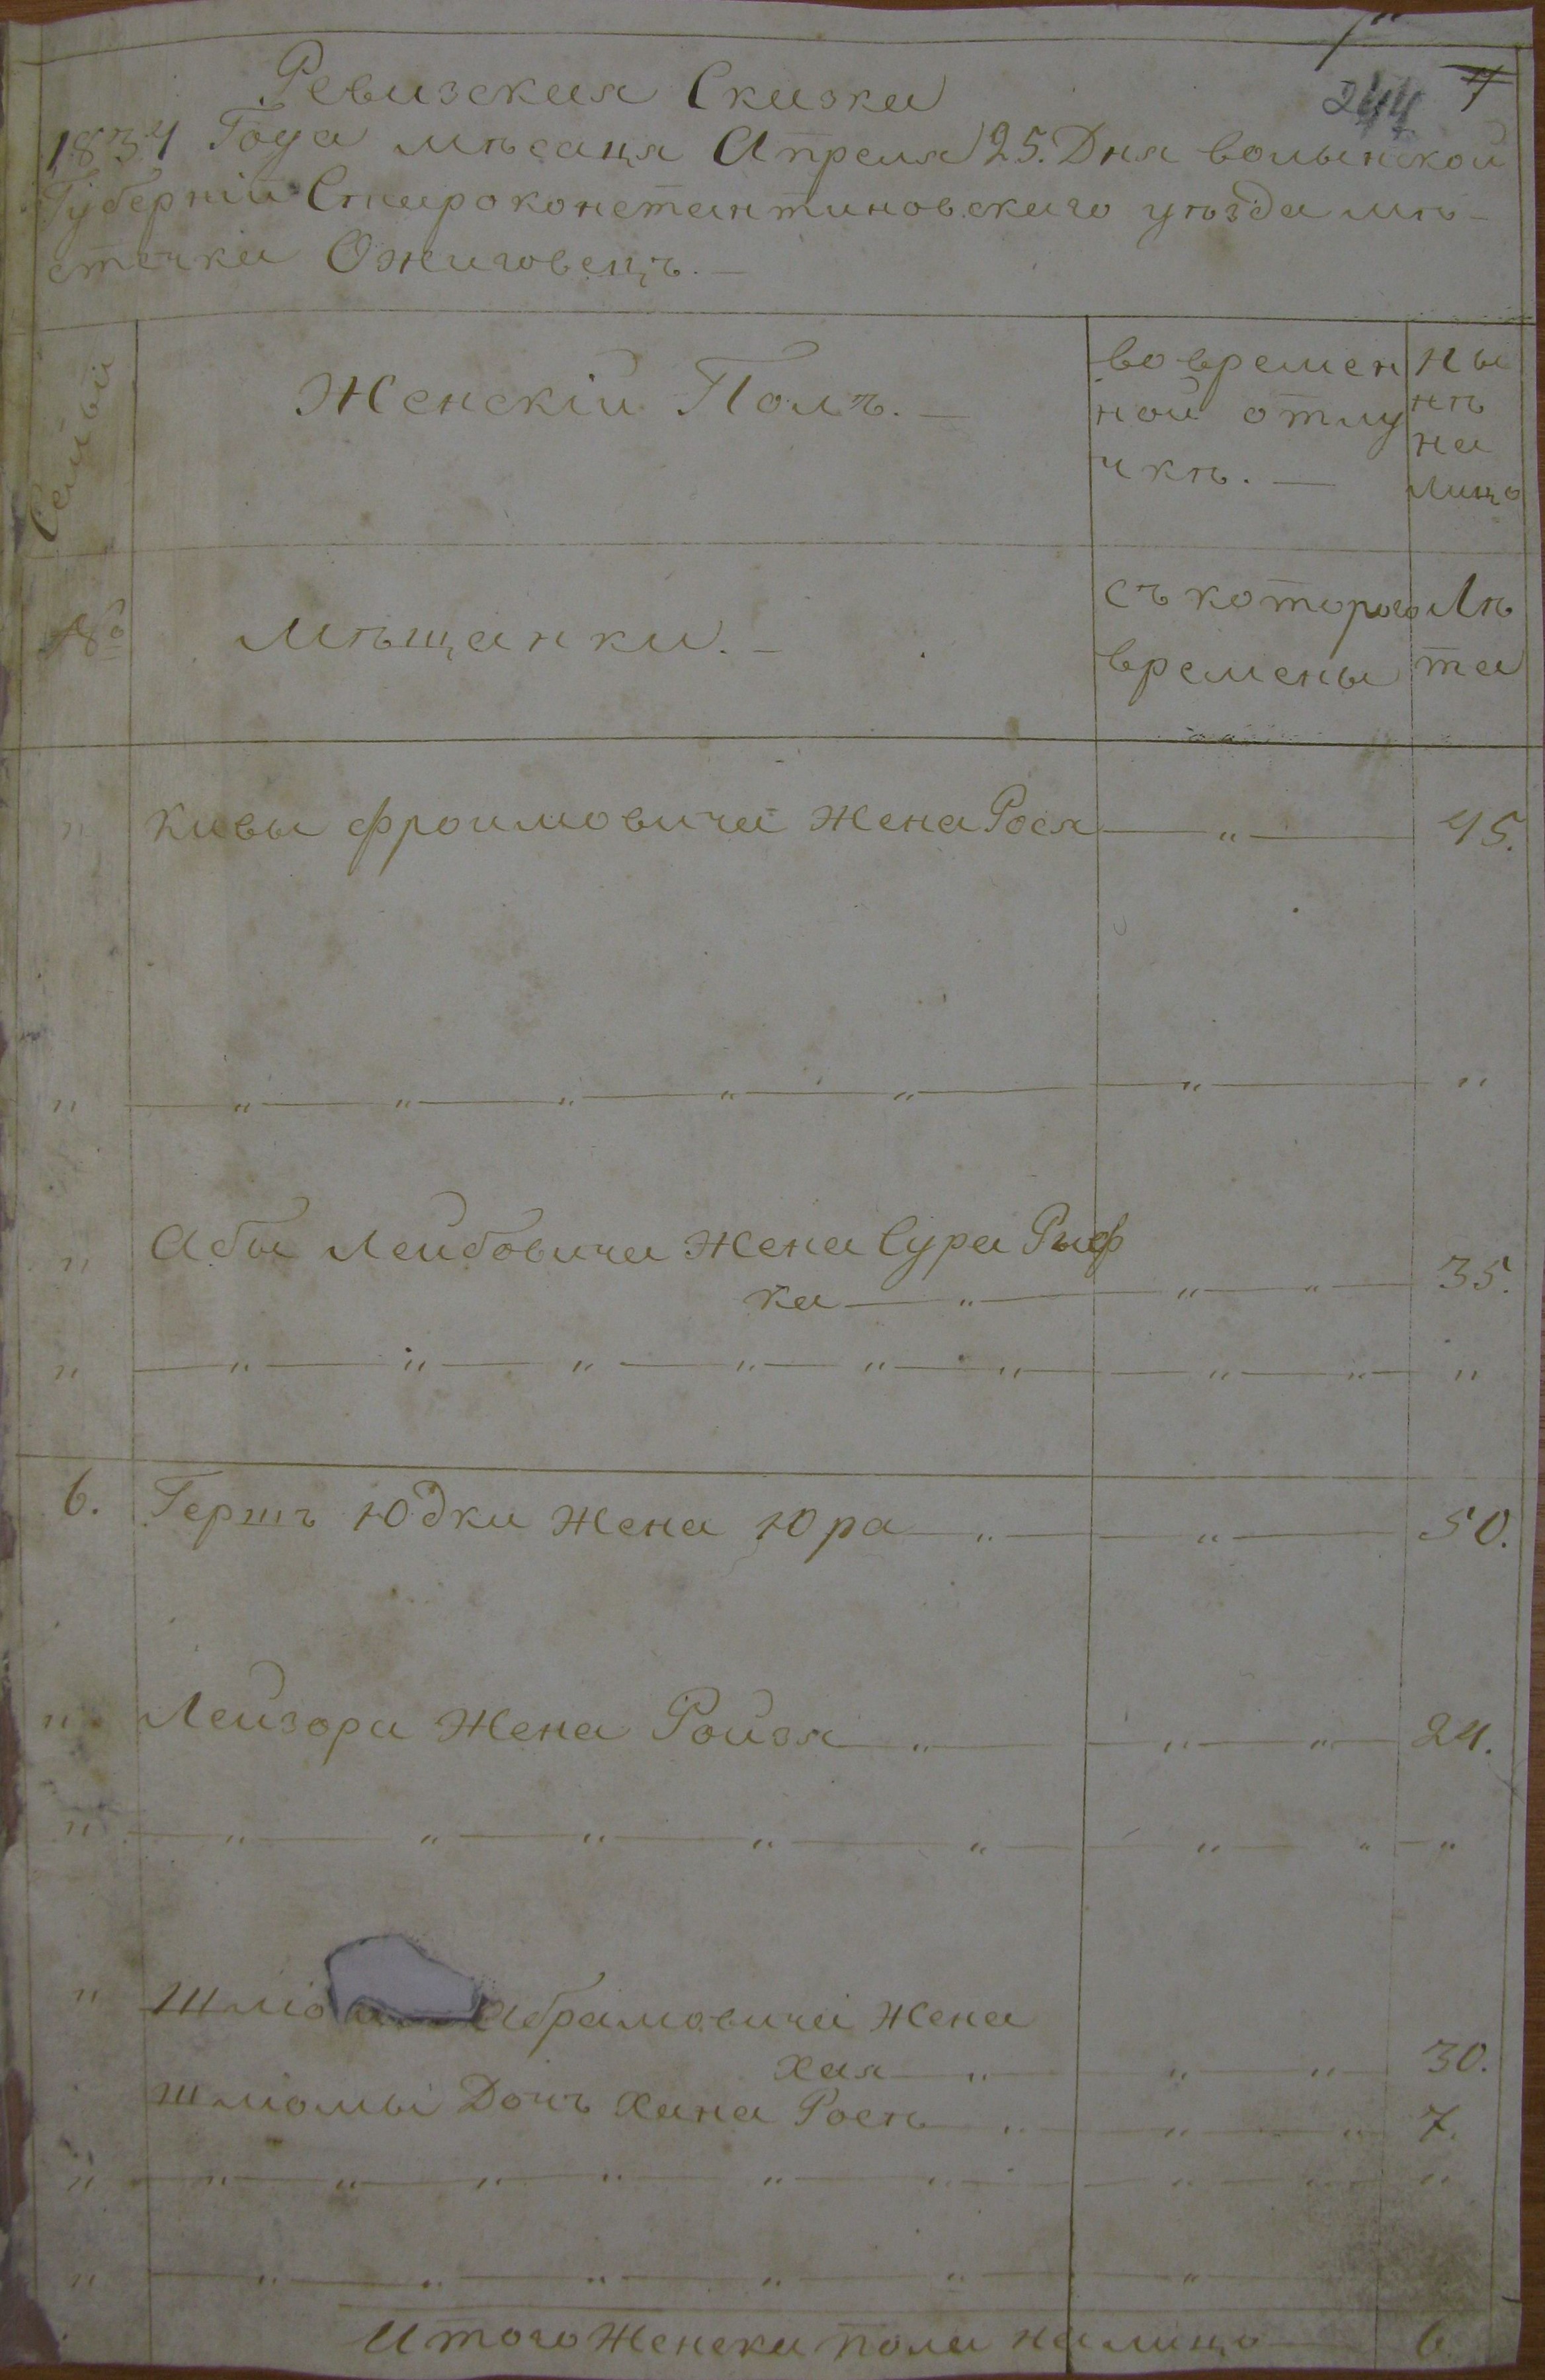 244
Ревизская Сказка
1834 Года мѣсаца Апреля 25. Дня волынской
Губерніи Староконстантиновскаго уѣзда мѣ-
стечка Ожиговецъ.—
Семьи
Женскій Полъ.—
во времен
ной отлу
чкѣ.—
ны
нѣ
на
лицо
№
Мѣщанки.—
съ которого
времены
Лѣ
та
" Кивы Фроимовича Жена Рося — " — 45.
" — " — " — " — " — " — " — "
" Абы Лейбовича Жена Сура Рыф
ка — " — " — " — 35.
" — " — " — " — " — " — " — " — " — "
6. Гершъ Юдки Жена Юра — " — " — 50.
" Лейзора Жена Ройзя — " — " — " — 24.
" — " — " — " — " — " — " — " — "
" Шлио Абрамовича Жена
Хая — " — " — " — 30.
Шлиомы Дочъ Хана Росѣ — " — " — " 7.
" — " — " — " — " — " — " — " — " — "
" — " — " — " — " — " — "
Итого Женска пола налицо — 6.